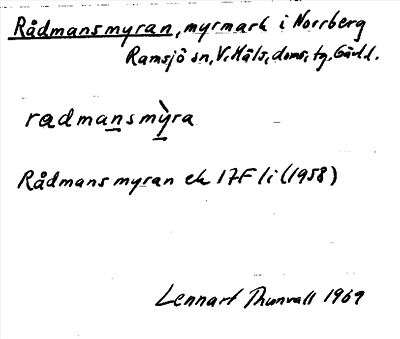 Rådmansmyran, myrmark i Norrberg
Ramsjö sn, V. Häls. doms. tg. Gävl.
radmansmỳra
Rådmansmyran ek 17F 1i (1958)
Lennart Thunvall 1969